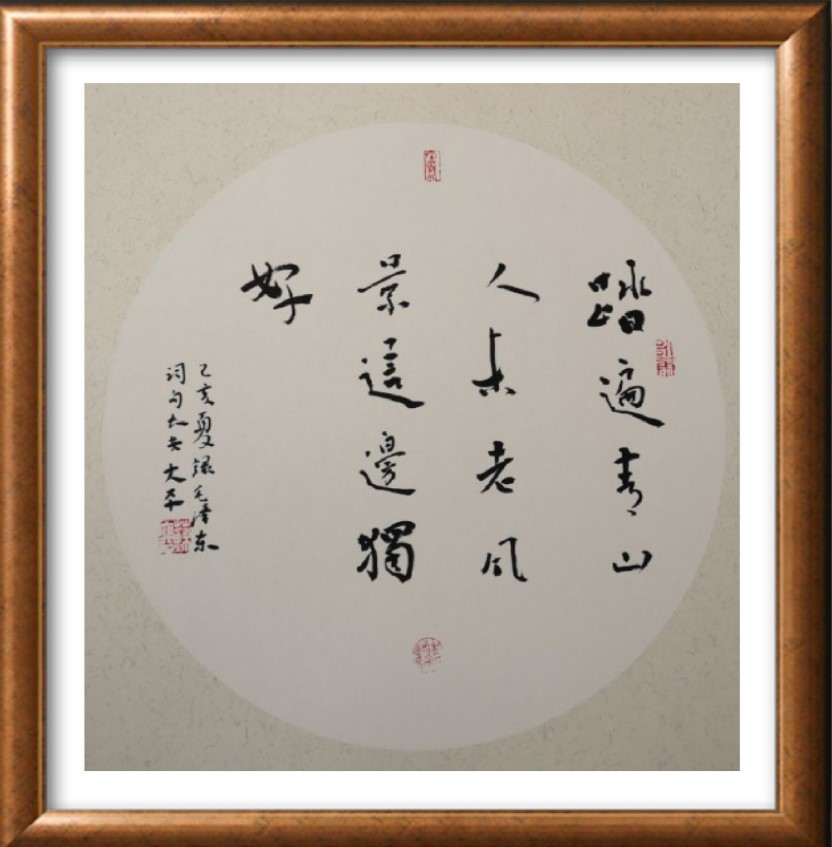 踏遍青山
人未老风
景這邊獨
好
己亥夏録毛泽东
词句